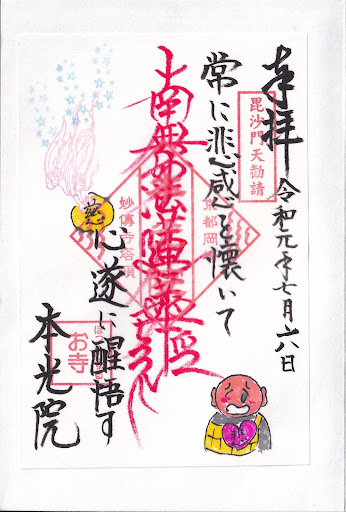 奉拝
毘沙門天勧請
令和元年七月六日
常に悲感を懐いて
心遂に醒悟す
南無妙法蓮華経
妙傳寺塔頭
京都岡
お寺
本光院